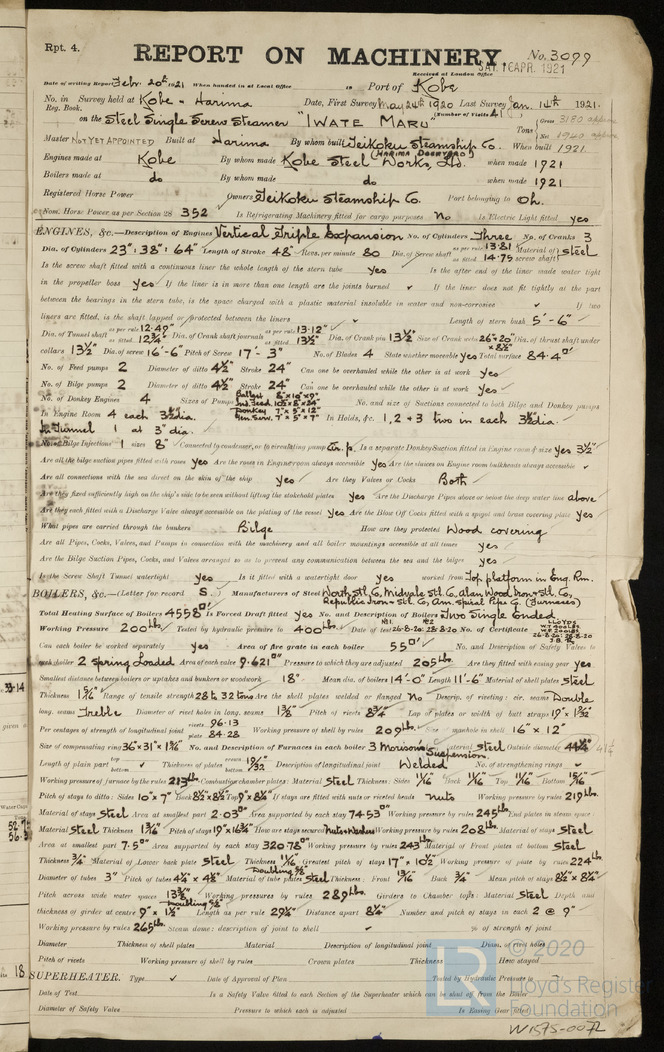 Rpt. 4.
REPORT ON MACHINERY. No. 3099
SAT. 16 APR. 1921
Received at London Office
Date of writing Report Febr. 20th 1921 When handed in at Local Office 19 Port of Kobe
No. in Survey held at Kobe & Harima Date, First Survey May 24th 1920 Last Survey Jan. 14th 1921.
Reg. Book. (Number of Visits 41)
on the Steel Single Screw Steamer "IWATE MARU" Tons Gross 3180
Net 1940
Master NOT YET APPOINTED Built at Harima By whom built Teikoku Steamship Co. When built 1921.
(HARIMA DOCKYARD)
Engines made at Kobe By whom made Kobe Steel Works, Ltd. when made 1921
Boilers made at do By whom made do when made 1921
Registered Horse Power Owners Teikoku Steamship Co. Port belonging to
Nom. Horse Power as per Section 28 352 Is Refrigerating Machinery fitted for cargo purposes No Is Electric Light fitted yes
ENGINES, &c.—Description of Engines Vertical Triple Expansion No. of Cylinders Three No. of Cranks 3
Dia. of Cylinders 23": 38": 64" Length of Stroke 48" Revs. per minute 80 Dia. of Screw shaft as per rule 13.81 as fitted 14.75 Material of screw shaft steel
Is the screw shaft fitted with a continuous liner the whole length of the stern tube yes Is the after end of the liner made water tight
in the propeller boss yes If the liner is in more than one length are the joints burned ✓ If the liner does not fit tightly at the part
between the bearings in the stern tube, is the space charged with a plastic material insoluble in water and non-corrosive ✓ If two
liners are fitted, is the shaft lapped or protected between the liners ✓ Length of stern bush 5'-6"
Dia. of Tunnel shaft as per rule 12.49" as fitted 12¾" Dia. of Crank shaft journals as per rule 13.12" as fitted 13½" Dia. of Crank pin 13½" Size of Crank webs 26"x20" x 8½" Dia. of thrust shaft under
collars 13½" Dia. of screw 16'-6" Pitch of Screw 17'-3" No. of Blades 4 State whether moveable yes Total surface 84.4□'
No. of Feed pumps 2 Diameter of ditto 4½" Stroke 24" Can one be overhauled while the other is at work yes
No. of Bilge pumps 2 Diameter of ditto 4½" Stroke 24" Can one be overhauled while the other is at work yes
No. of Donkey Engines 4 Sizes of Pumps Ballast 8"x10"x9" Ind. Feed. 10½"x8"x24" Donkey 7"x5"x12" Gen. Serv. 7"x5"x7" No. and size of Suctions connected to both Bilge and Donkey pumps
In Engine Room 4 each 3½" dia. In Holds, &c. 1, 2 & 3 two in each 3½" dia.
In Tunnel 1 at 3" dia.
No. of Bilge Injections 1 sizes 8" Connected to condenser, or to circulating pump Cir. p. Is a separate Donkey Suction fitted in Engine room & size yes 3½"
Are all the bilge suction pipes fitted with roses yes Are the roses in Engine room always accessible yes Are the sluices on Engine room bulkheads always accessible ✓
Are all connections with the sea direct on the skin of the ship yes Are they Valves or Cocks Both
Are they fixed sufficiently high on the ship's side to be seen without lifting the stokehold plates yes Are the Discharge Pipes above or below the deep water line above
Are they each fitted with a Discharge Valve always accessible on the plating of the vessel yes Are the Blow Off Cocks fitted with a spigot and brass covering plate yes
What pipes are carried through the bunkers Bilge How are they protected Wood covering
Are all Pipes, Cocks, Valves, and Pumps in connection with the machinery and all boiler mountings accessible at all times yes
Are the Bilge Suction Pipes, Cocks, and Valves arranged so as to prevent any communication between the sea and the bilges yes
Is the Screw Shaft Tunnel watertight yes Is it fitted with a watertight door yes worked from Top platform in Eng. Rm.
BOILERS, &c.—(Letter for record S.) Manufacturers of Steel Worth Stl. Co, Midvale Stl. Co, Alan Wood Iron & Stl. Co,
Republic Iron & Stl. Co, Am. Spiral Pipe Co. (Furnaces)
Total Heating Surface of Boilers 4558□' Is Forced Draft fitted yes No. and Description of Boilers Two Single Ended
Working Pressure 200 lbs. Tested by hydraulic pressure to 400 lbs. Date of test No1 26-8-20: No2 28-8-20 No. of Certificate LLOYDS
26-8-20: 28-8-20
Can each boiler be worked separately yes Area of fire grate in each boiler 55□' No. and Description of Safety Valves to
each boiler 2 spring Loaded Area of each valve 9.621□" Pressure to which they are adjusted 205 lbs. Are they fitted with easing gear yes
Smallest distance between boilers or uptakes and bunkers or woodwork 18" Mean dia. of boilers 14'-0" Length 11'-6" Material of shell plates Steel
Thickness 1 5/16" Range of tensile strength 28 to 32 tons Are the shell plates welded or flanged No Descrip. of riveting: cir. seams Double
long. seams Treble Diameter of rivet holes in long. seams 1 3/8" Pitch of rivets 8¾" Lap of plates or width of butt straps 19" x 1 3/32"
Per centages of strength of longitudinal joint rivets 96.13 plate 84.28 Working pressure of shell by rules 209 lbs. Size of manhole in shell 16" x 12"
Size of compensating ring 36"x31"x1 5/16" No. and Description of Furnaces in each boiler 3 Morison's Suspension. Material steel Outside diameter 44¼"
Length of plain part top bottom Thickness of plates crown bottom 19/32" Description of longitudinal joint Welded No. of strengthening rings ✓
Working pressure of furnace by the rules 213 lbs. Combustion chamber plates: Material Steel Thickness: Sides 11/16" Back 11/16" Top 11/16" Bottom 15/16"
Pitch of stays to ditto: Sides 10"x7" Back 8½"x8½" Top 9"x8¼" If stays are fitted with nuts or riveted heads nuts Working pressure by rules 219 lbs.
Material of stays steel Area at smallest part 2.03□" Area supported by each stay 74.53□" Working pressure by rules 245 lbs. End plates in steam space:
Material Steel Thickness 1 3/16" Pitch of stays 19"x16¾" How are stays secured Nuts & Washers Working pressure by rules 208 lbs. Material of stays Steel
Area at smallest part 7.5□" Area supported by each stay 320.78□" Working pressure by rules 243 lbs. Material of Front plates at bottom Steel
Thickness ¾" Material of Lower back plate Steel Thickness 11/16" Greatest pitch of stays 17"x10½" Working pressure of plate by rules 224 lbs.
Doubling 5/8"
Diameter of tubes 3" Pitch of tubes 4¼"x4¼" Material of tube plates Steel Thickness: Front 13/16" Back ¾" Mean pitch of stays 8½"x8½"
Pitch across wide water spaces 13¾" Working pressures by rules 289 lbs. Girders to Chamber tops: Material Steel Depth and
Doubling 5/8"
thickness of girder at centre 9"x1½" Length as per rule 29¼" Distance apart 8¼" Number and pitch of stays in each 2 @ 9"
Working pressure by rules 265 lbs. Steam dome: description of joint to shell ✓ % of strength of joint
Diameter Thickness of shell plates Material Description of longitudinal joint Diam. of rivet holes
Pitch of rivets Working pressure of shell by rules Crown plates Thickness How stayed
SUPERHEATER. Type ✓ Date of Approval of Plan Tested by Hydraulic Pressure to
Date of Test Is a Safety Valve fitted to each Section of the Superheater which can be shut off from the Boiler
Diameter of Safety Valve Pressure to which each is adjusted Is Easing Gear fitted
© 2020
Lloyd's Register
Foundation
W1575-0072